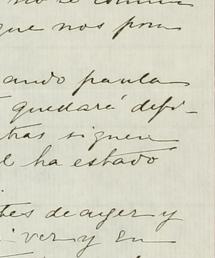 no se
que nos pon
ando paula
quedaré defi-
tras siguen
l ha estado
tes de ayer y
ver y en